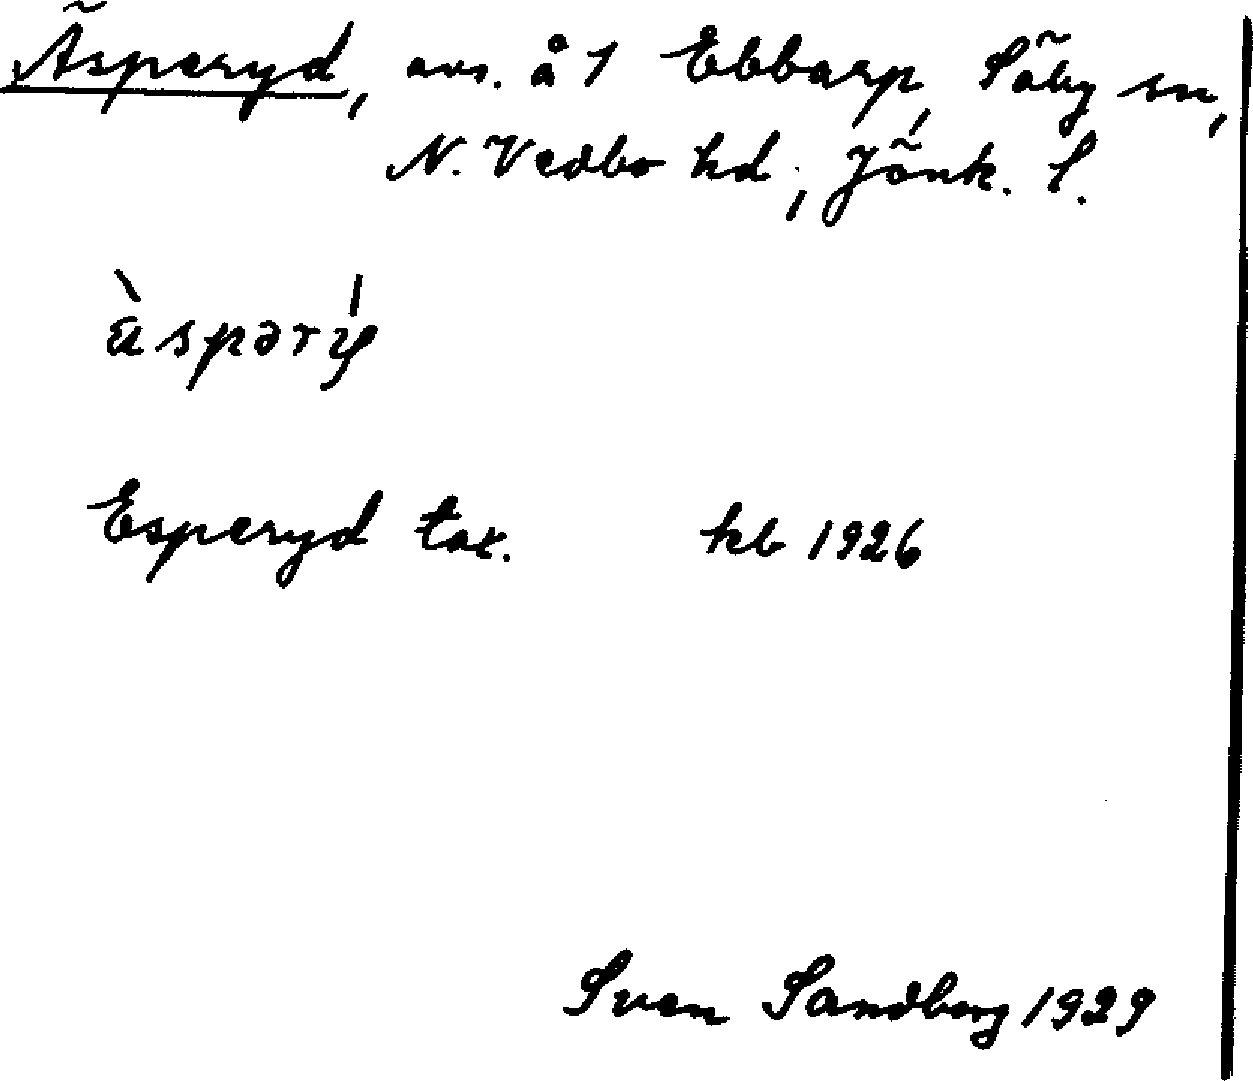 Äsperyd, avs. å 1 Ebbarp, Säby sn,
N. Vedbo hd, Jönk. l.
ä̀spərý
Esperyd tax. kb 1926
Sven Sandberg 1929